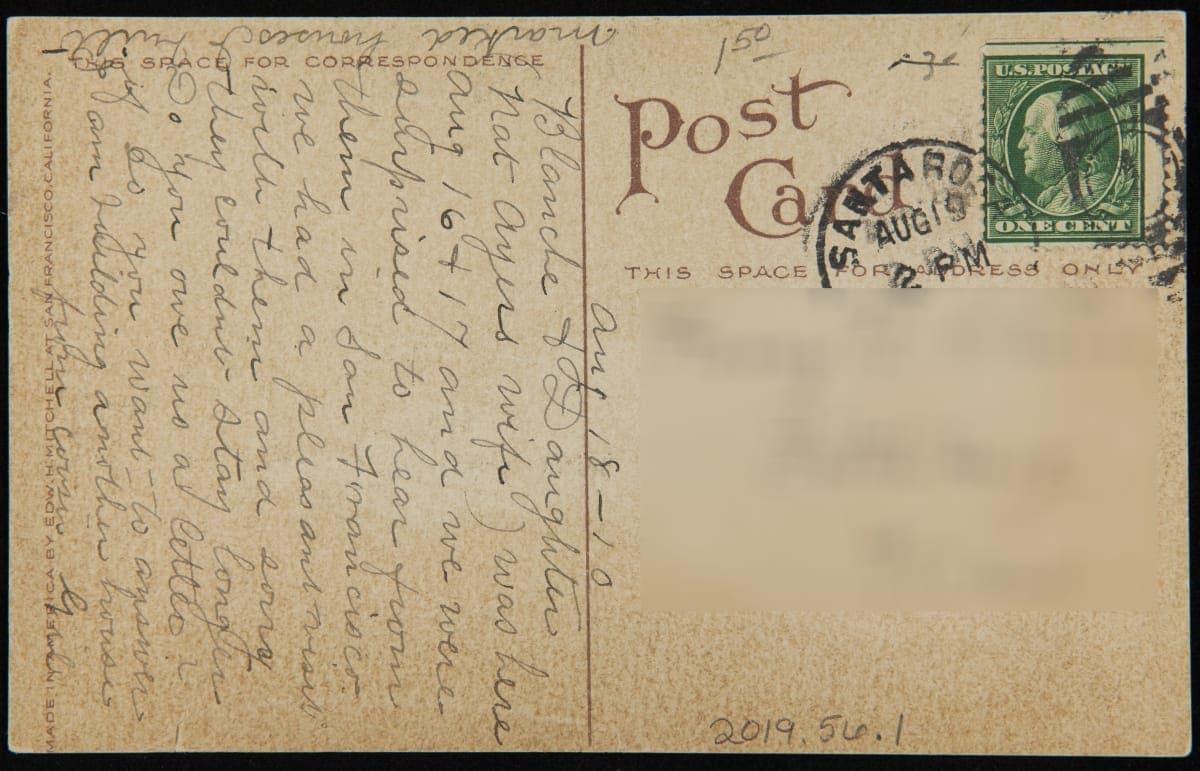 marked houses I built
THIS SPACE FOR CORRESPONDENCE
Aug 18-10
Blanche & Daughter
(Nat Ayers wife) was here
Aug 16 & 17 and we were
surprised to hear from
them in San Francisco
we had a pleasant visit
with them and sorry
they couldnt stay longer
Do you owe us a letter
if so you want to answer
I am building another house
from cousin
MADE IN AMERICA BY EDW. H. MITCHELL AT SAN FRANCISCO, CALIFORNIA.
150
Post
Card
THIS SPACE FOR ADDRESS ONLY
U.S. POSTAGE
ONE CENT
SANTA RO
AUG 19
2 PM
2019.56.1